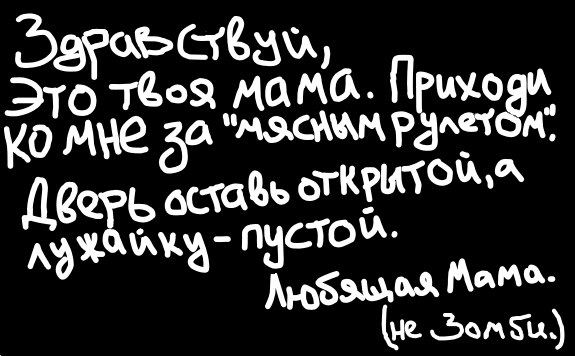 Здравствуй,
это твоя мама. Приходи
ко мне за "мясным рулетом".
Дверь оставь открытой, а
лужайку - пустой.
Любящая Мама.
(не Зомби.)